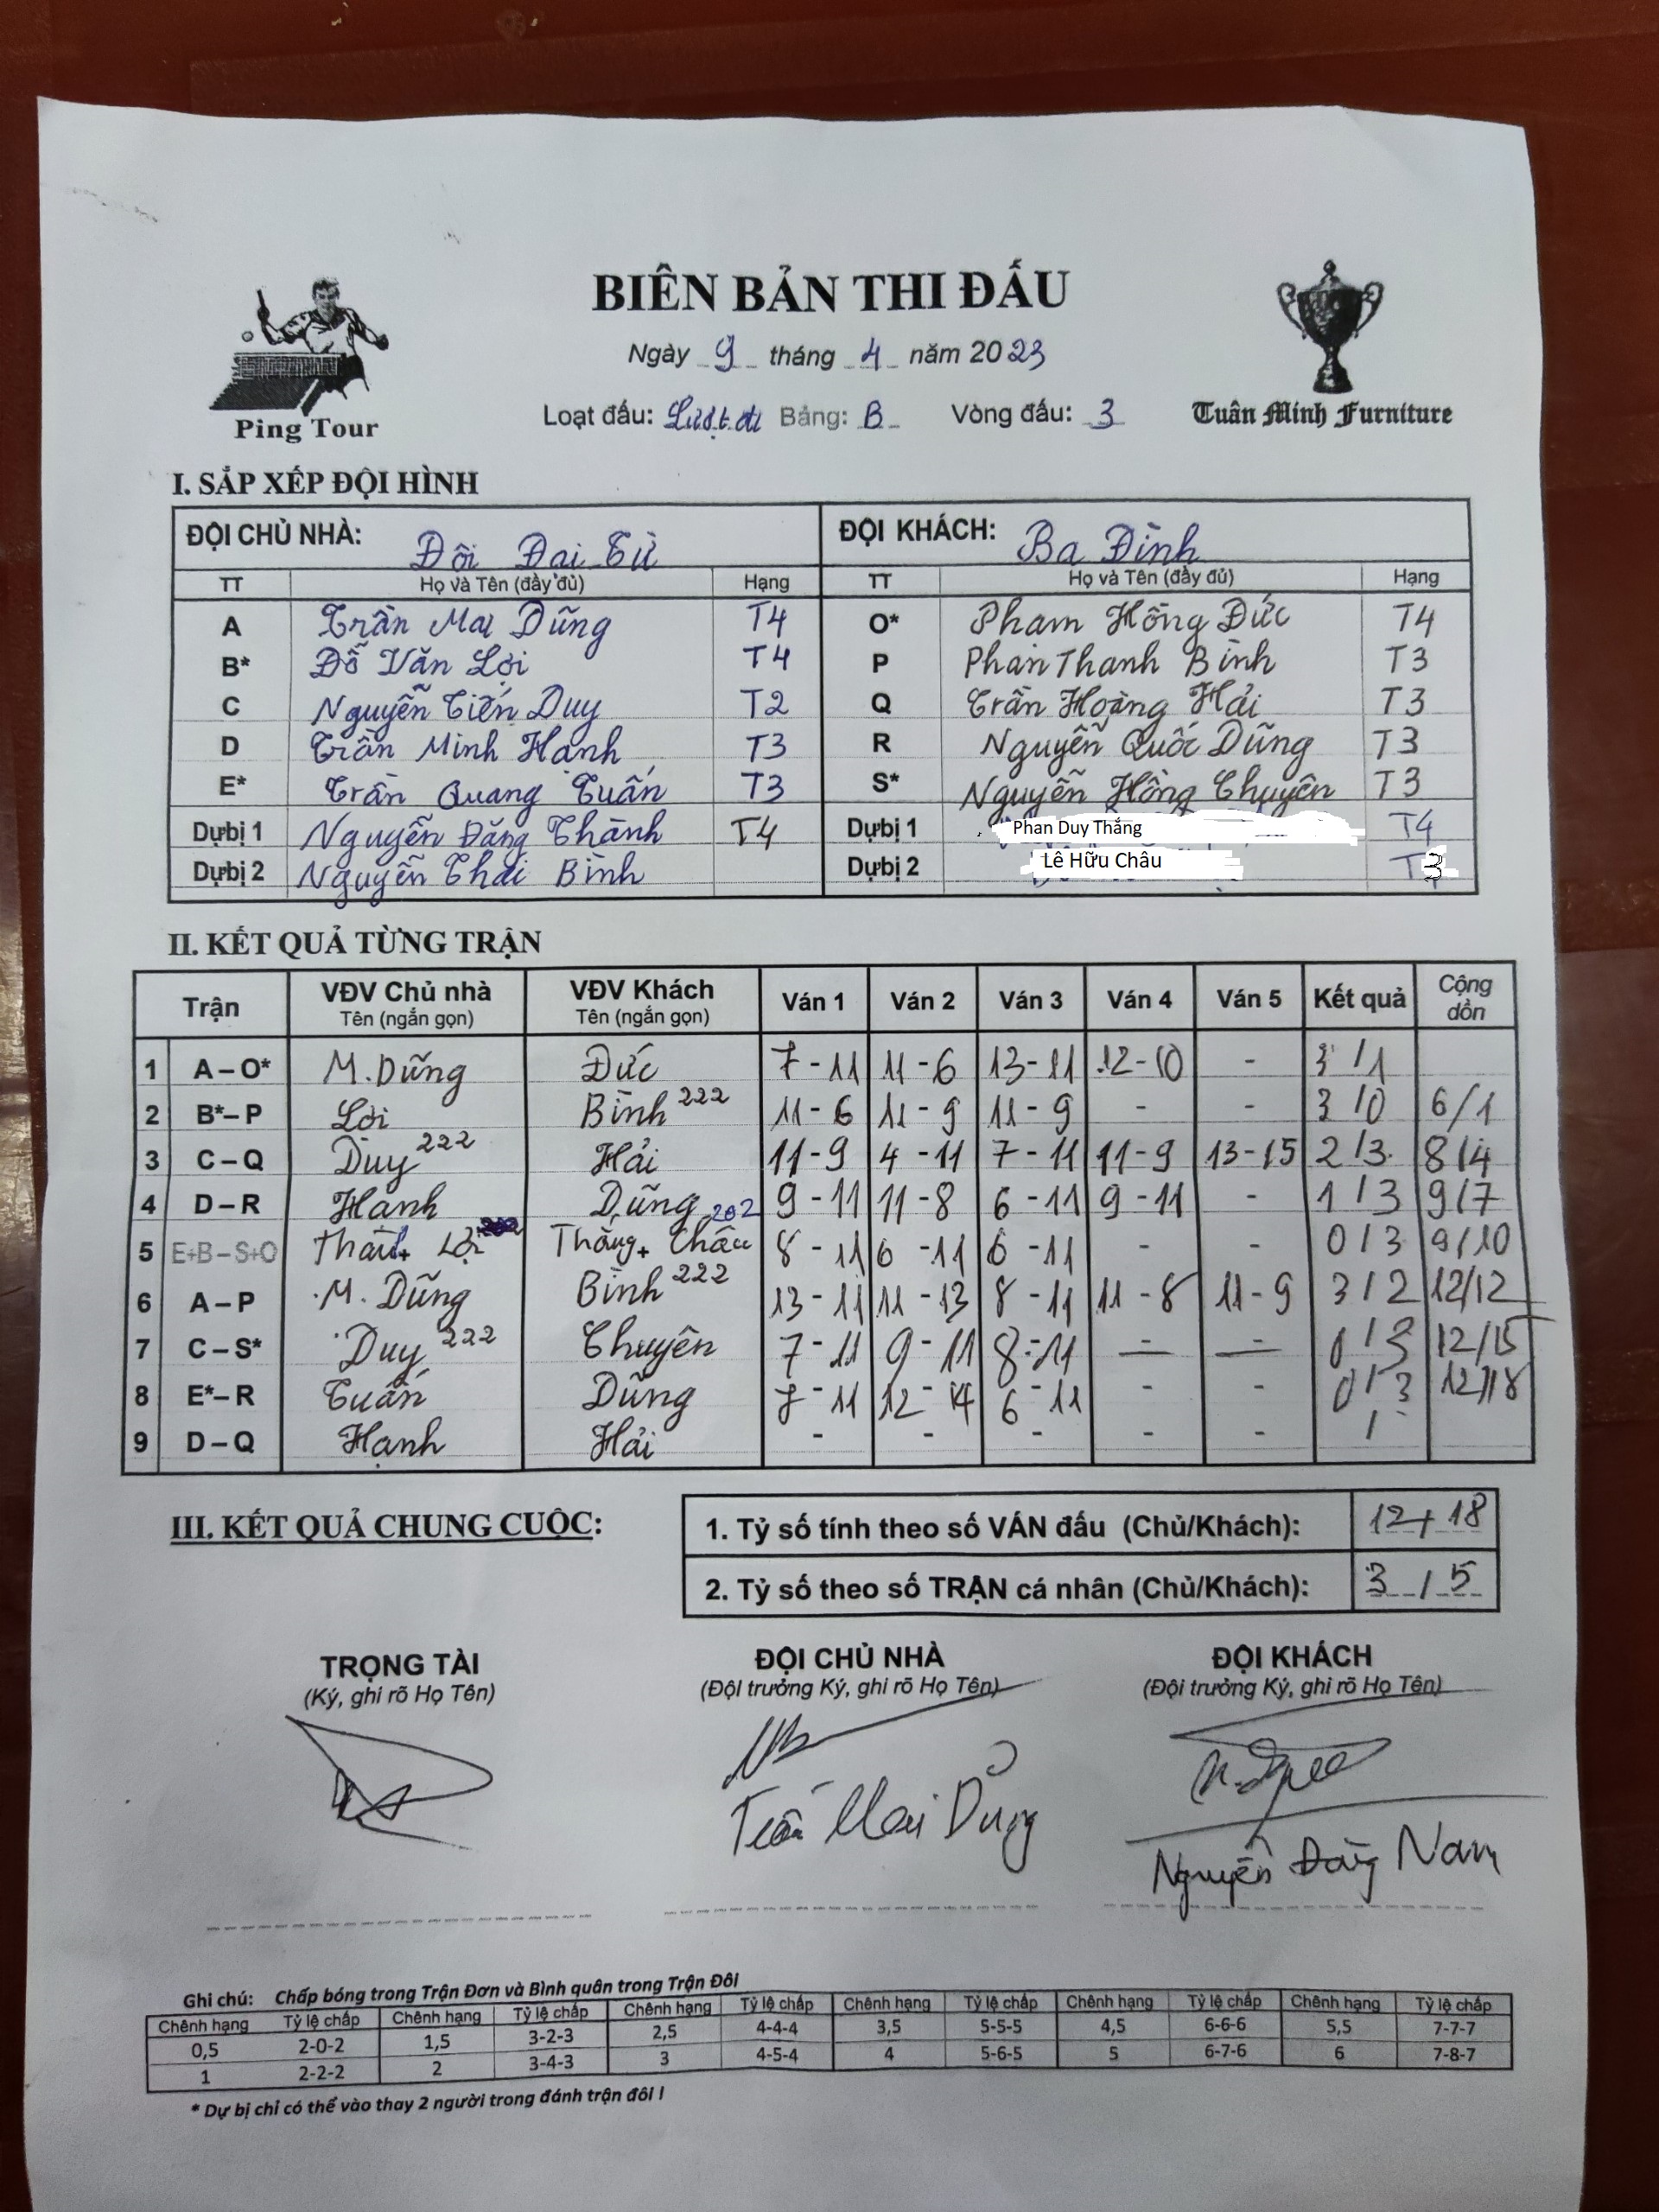 BIÊN BẢN THI ĐẤU
Ngày 9 tháng 4 năm 2023
Ping Tour
Loạt đấu: Lượt đi Bảng: B Vòng đấu: 3
Tuân Minh Furniture
I. SẮP XẾP ĐỘI HÌNH
ĐỘI CHỦ NHÀ: Đôi Đại Từ ĐỘI KHÁCH: Ba Đình
TT Họ và Tên (đầy đủ) Hạng TT Họ và Tên (đầy đủ) Hạng
A Trần Mai Dũng T4 O* Phạm Hồng Đức T4
B* Đỗ Văn Lợi T4 P Phan Thanh Bình T3
C Nguyễn Tiến Duy T2 Q Trần Hoàng Hải T3
D Trần Minh Hạnh T3 R Nguyễn Quốc Dũng T3
E* Trần Quang Tuấn T3 S* Nguyễn Hồng Chuyên T3
Dự bị 1 Nguyễn Đăng Thành T4 Dự bị 1 Phan Duy Thắng T4
Dự bị 2 Nguyễn Thái Bình Dự bị 2 Lê Hữu Châu T3
II. KẾT QUẢ TỪNG TRẬN
Trận VĐV Chủ nhà VĐV Khách Ván 1 Ván 2 Ván 3 Ván 4 Ván 5 Kết quả Cộng dồn
Tên (ngắn gọn) Tên (ngắn gọn)
1 A – O* M. Dũng Đức 7-11 11-6 13-11 12-10 - 3/1
2 B* – P Lợi Bình 222 11-6 11-9 11-9 - - 3/0 6/1
3 C – Q Duy 222 Hải 11-9 4-11 7-11 11-9 13-15 2/3 8/4
4 D – R Hạnh Dũng 202 9-11 11-8 6-11 9-11 - 1/3 9/7
5 E+B – S+O + Lợi Thắng + Châu 8-11 6-11 6-11 - - 0/3 9/10
6 A – P M. Dũng Bình 222 13-11 11-13 8-11 11-8 11-9 3/2 12/12
7 C – S* Duy 222 Chuyên 7-11 9-11 8-11 — — 0/3 12/15
8 E* – R Tuấn Dũng 7-11 12-14 6-11 - - 0/3 12/18
9 D – Q Hạnh Hải - - - - - /
III. KẾT QUẢ CHUNG CUỘC:
1. Tỷ số tính theo số VÁN đấu (Chủ/Khách): 12/18
2. Tỷ số theo số TRẬN cá nhân (Chủ/Khách): 3/5
TRỌNG TÀI ĐỘI CHỦ NHÀ ĐỘI KHÁCH
(Ký, ghi rõ Họ Tên) (Đội trưởng Ký, ghi rõ Họ Tên) (Đội trưởng Ký, ghi rõ Họ Tên)
Trần Mai Dũng
Nguyễn Đăng Nam
Ghi chú: Chấp bóng trong Trận Đơn và Bình quân trong Trận Đôi
Chênh hạng Tỷ lệ chấp Chênh hạng Tỷ lệ chấp Chênh hạng Tỷ lệ chấp Chênh hạng Tỷ lệ chấp Chênh hạng Tỷ lệ chấp Chênh hạng Tỷ lệ chấp
0,5 2-0-2 1,5 3-2-3 2,5 4-4-4 3,5 5-5-5 4,5 6-6-6 5,5 7-7-7
1 2-2-2 2 3-4-3 3 4-5-4 4 5-6-5 5 6-7-6 6 7-8-7
* Dự bị chỉ có thể vào thay 2 người trong đánh trận đôi !